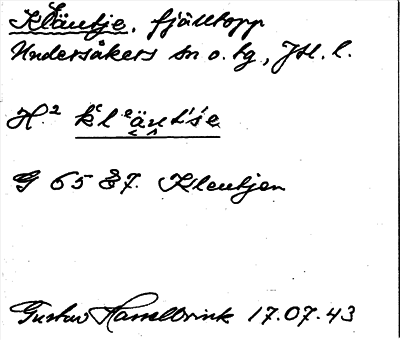 Kläntje, fjälltopp
Undersåkers sn o. tg, Jtl. l.
H.² k'lᵉänt's'e
G 65 § 7. Klentjen
Gustav Hasselbrink 17.07.43